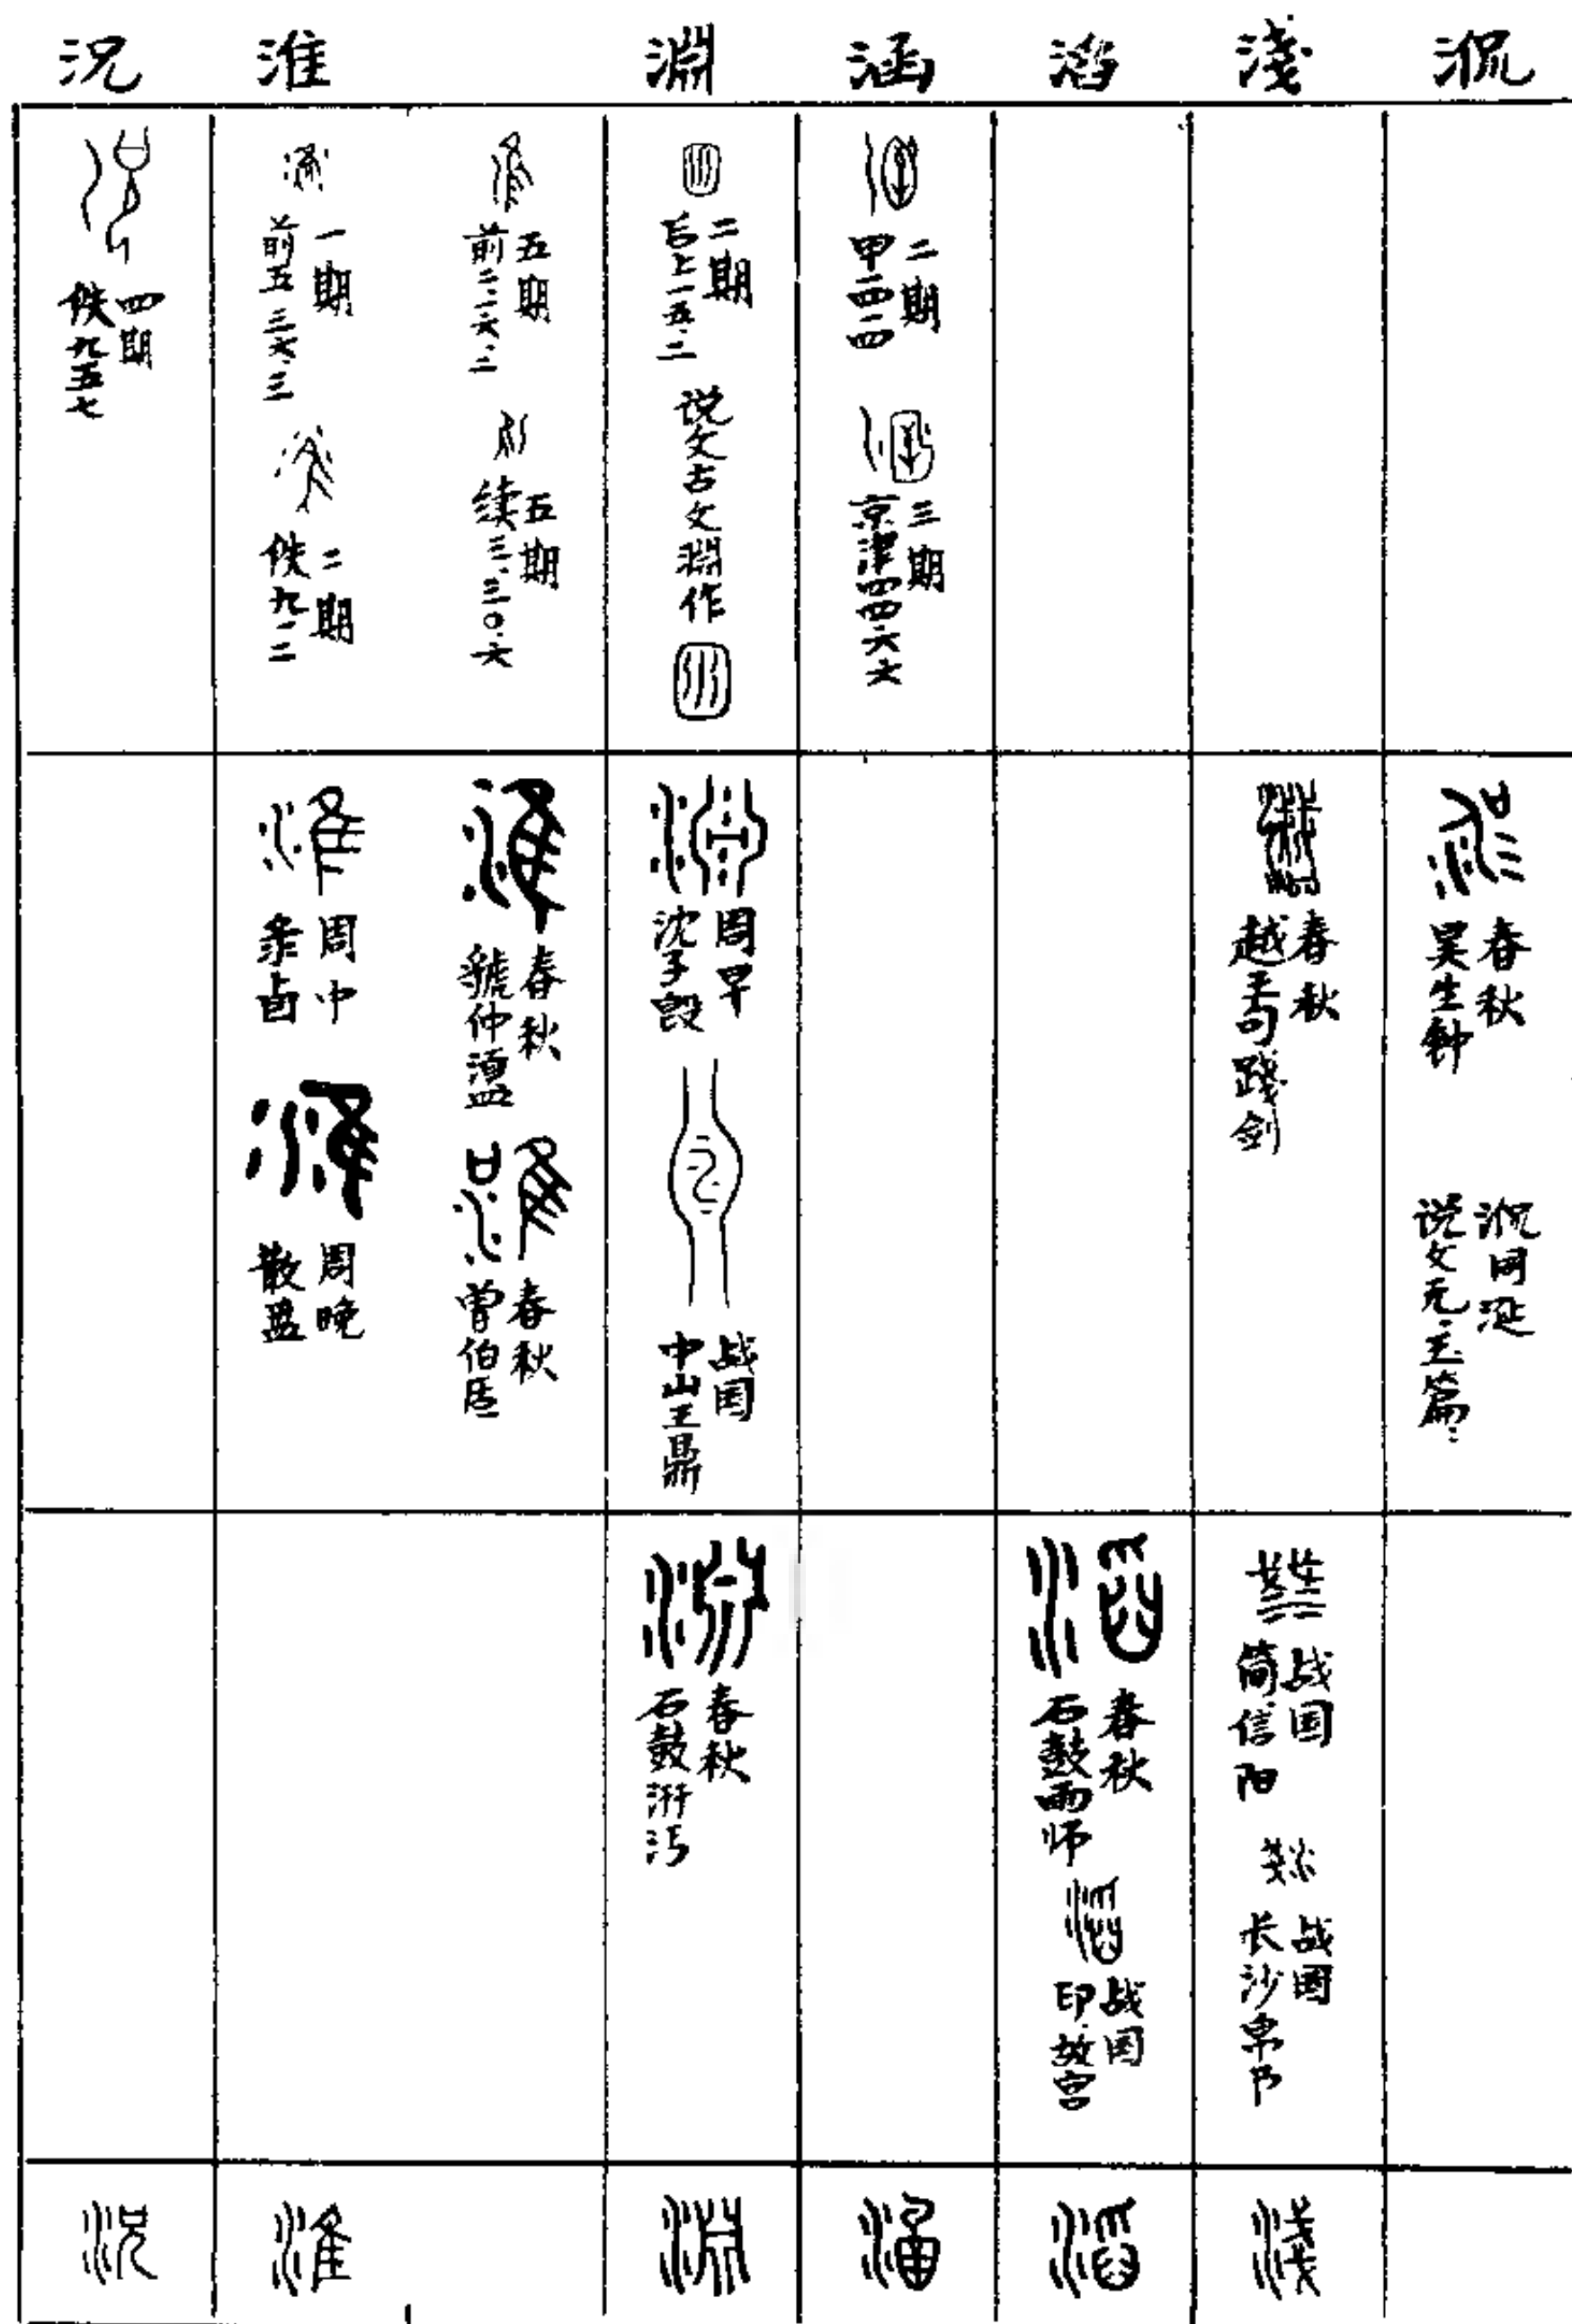 况 淮 淵 涵 滔 淺 𣵽
四期
佚九五七
一期
前五三六三
二期
佚九二二
五期
前二·一六·二
五期
续三·三〇·六
二期
后上一五·二
说文古文淵作
二期
三期
京津四四六六
周中
彔卣
周晚
散盘
春秋
虢仲盨
春秋
曾伯𠤳
周早
沈子𣪘
战国
中山王鼎
春秋
越王句践剑
春秋
昊生钟
春秋
石鼓汧沔
春秋
石鼓雨师
战国
印·故宫
战国
简信阳
战国
长沙帛书
况 淮 淵 涵 滔 淺